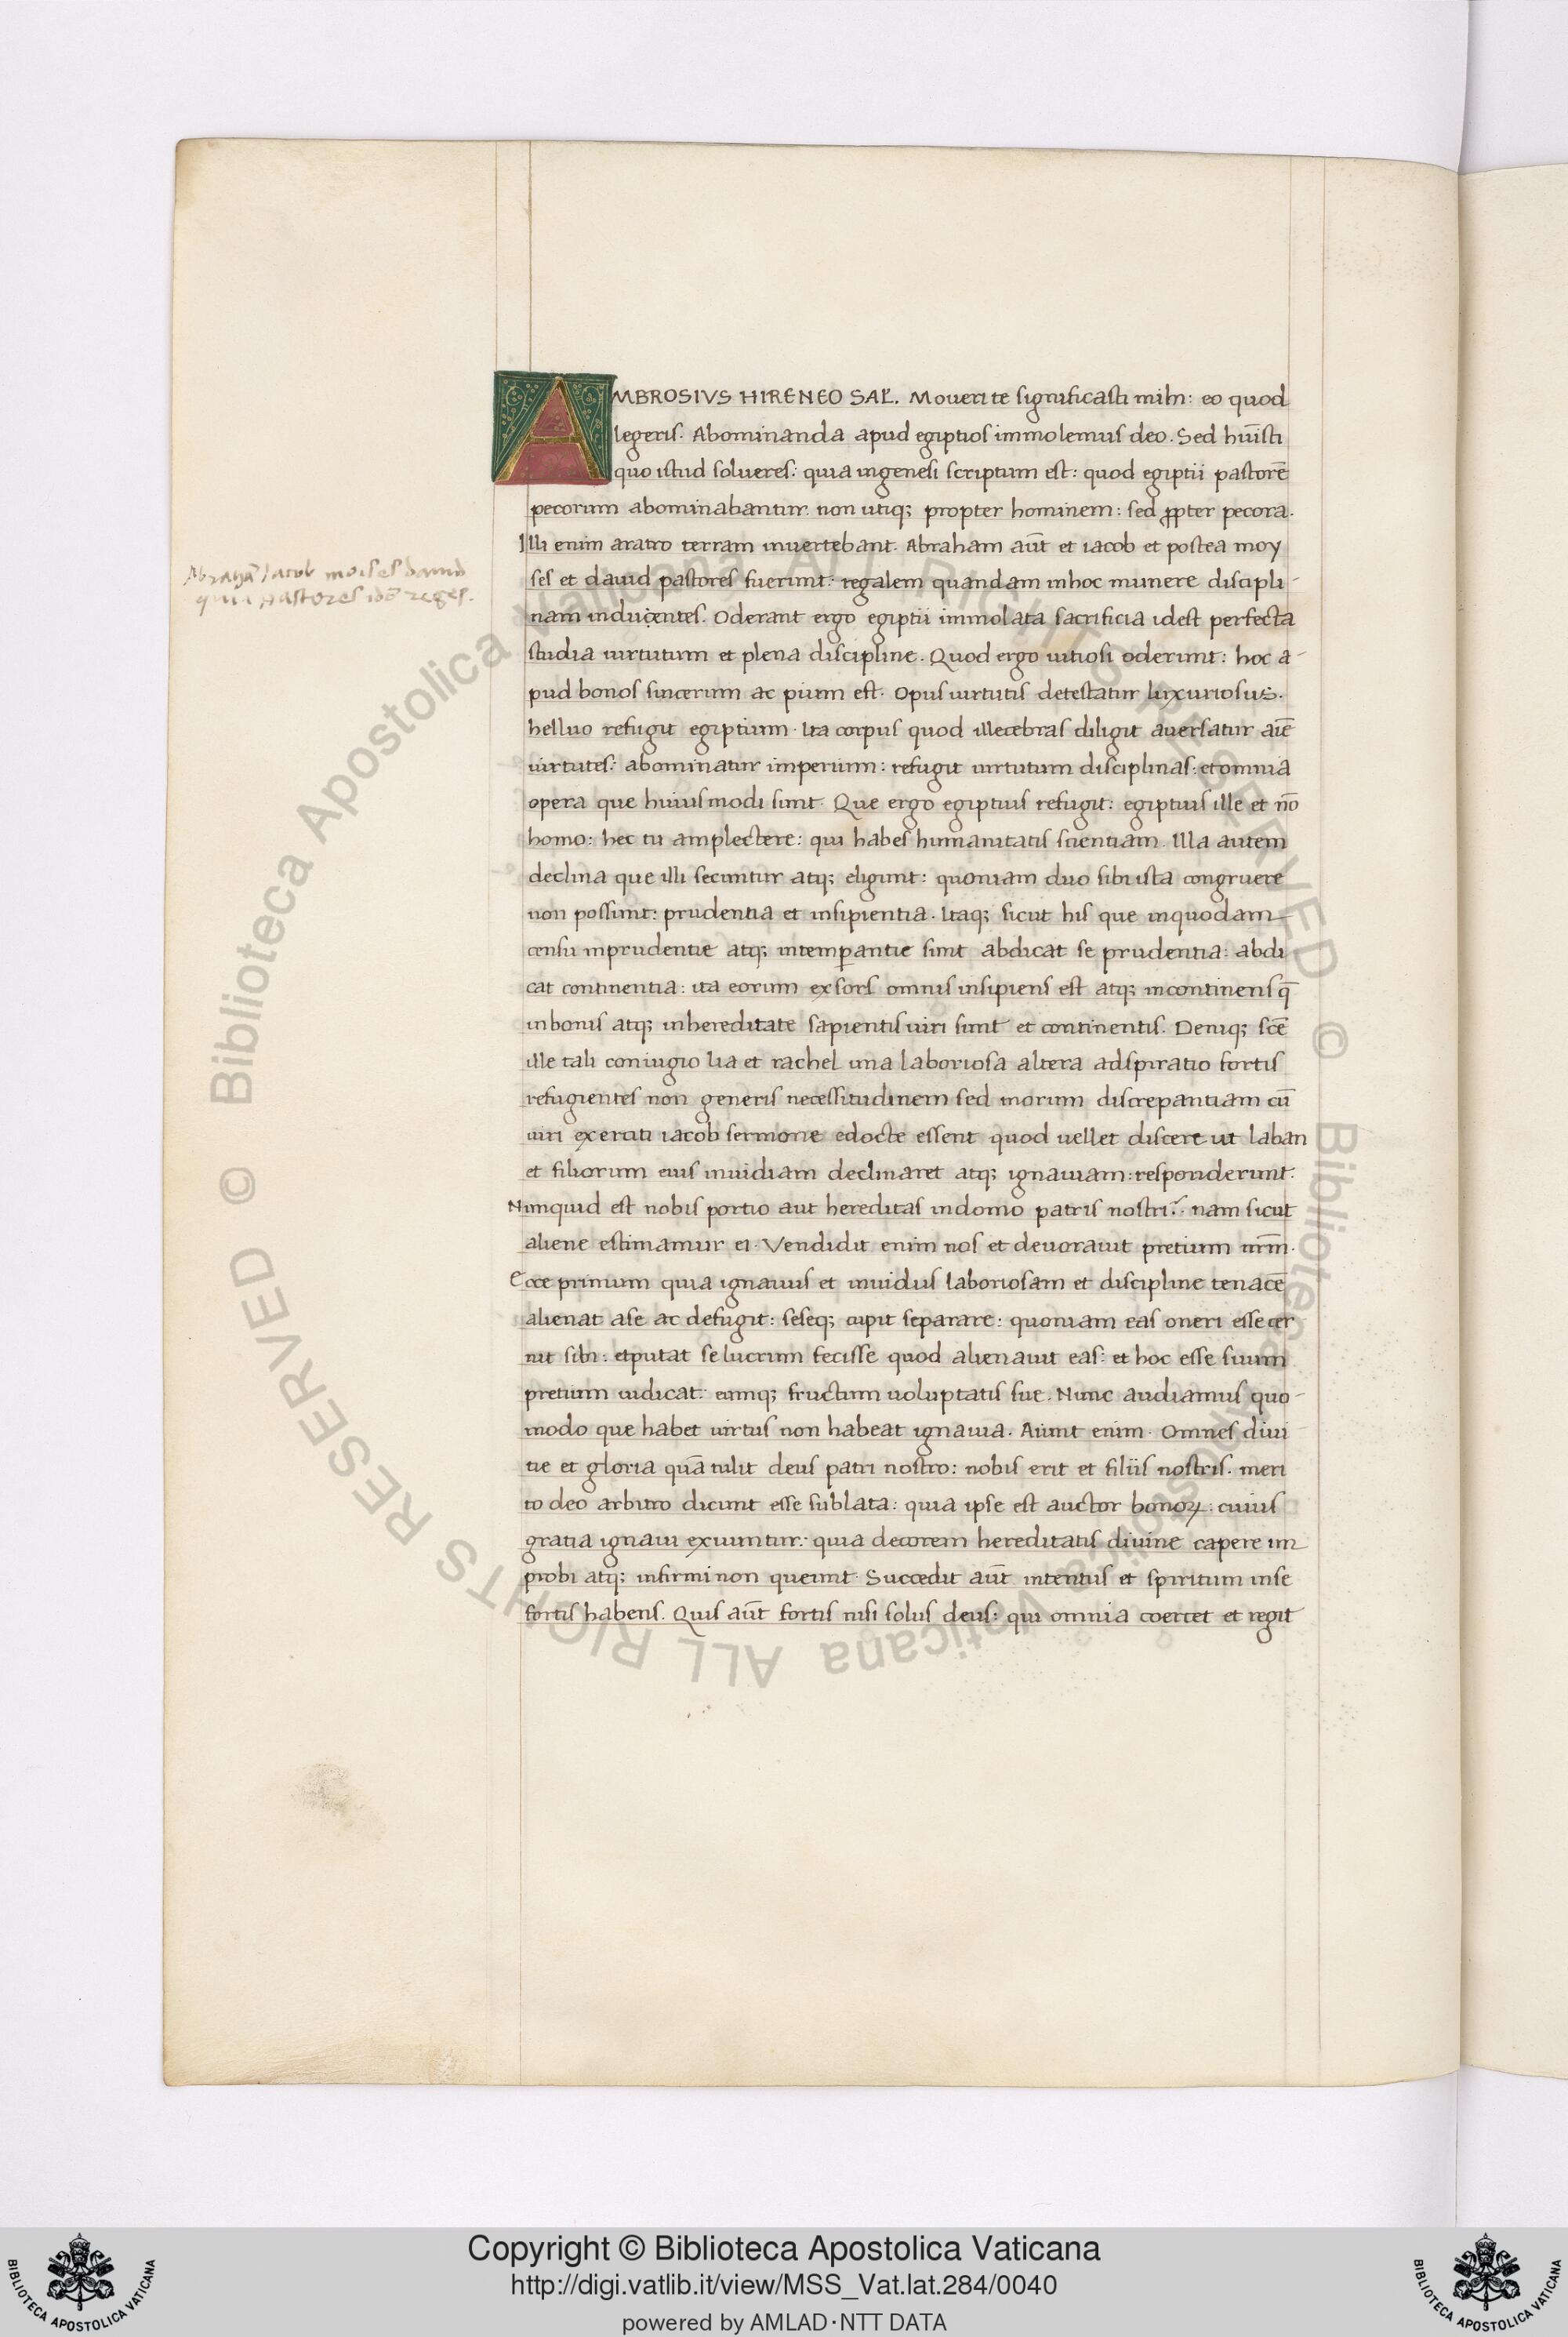 AMBROSIVS HIRENEO SAL̅. Moveri te significasti mihi: eo quod
legeris. Abominanda apud egiptios immolemus deo. Sed hũisti
quo istud solueres: quia ingenesi scriptum est: quod egiptii pastorẽ
pecorum abominabantur. non utiq; propter hominem: sed ꝓpter pecora.
Illi enim aratro terram invertebant. Abraham aũt et iacob et postea moy
ses et david pastores fuerunt: regalem quandam inhoc munere discipli-
nam inducentes. Oderant ergo egiptii immolata sacrificia idest perfecta
studia uirtutum et plena discipline. Quod ergo uitiosi oderunt: hoc a-
pud bonos sincerum ac pium est. Opus uirtutis detestatur luxuriosus.
helluo refugit egiptium. Ita corpus quod illecebras diligit auersatur aiẽ
uirtutes: abominatur imperium: refugit uirtutum disciplinas: et omnia
opera que huiusmodi sunt. Que ergo egiptius refugit: egiptius ille et nõ
homo: hec tu amplectere: qui habes humanitatis scientiam. Illa autem
declina que illi secuntur atq; eligunt: quoniam duo sibi ista congruere
non possunt: prudentia et insipientia. Itaq; sicut his que inquodam
censu inprudentie atq; intemꝑantie sunt abdicat se prudentia: abdi
cat continentia: ita eorum exsors omnis insipiens est atq; incontinens q̃
inbonis atq; inhereditate sapientis uiri sunt et continentis. Deniq; scẽ
ille tali coniugio lia et rachel una laboriosa altera adspiratio fortis
refugientes non generis necessitudinem sed morum discrepantiam cũ
uiri exerciti iacob sermone edocte essent quod uellet discere ut laban
et filiorum eius inuidiam declinaret atq; ignauiam: responderunt.
Nunquid est nobis portio aut hereditas indomo patris nostri? nam sicut
aliene estimamur ei. Vendidit enim nos et deuorauit pretium nrm̃.
Ecce primum quia ignauus et inuidus laboriosam et discipline tenacẽ
alienat ase ac defugit: seseq; cupit separare: quoniam eas oneri esse cer
nit sibi: etputat se lucrum fecisse quod alienauit eas: et hoc esse suum
pretium iudicat: eumq; fructum uoluptatis sue. Nunc audiamus quo-
modo que habet uirtus non habeat ignauia. Aiunt enim. Omnes diui
tie et gloria quã tulit deus patri nostro: nobis erit et filiis nostris. meri
to deo arbitro dicunt esse sublata: quia ipse est auctor bonoꝝ: cuius
gratia ignaui exuuntur: quia decorem hereditatis diuine capere im
probi atq; infirmi non queunt. Succedit aũt intentus et spiritum inse
fortis habens. Quis aũt fortis nisi solus deus: qui omnia coercet et regit
Abrahã Iacob moises dauid
quia pastores idẽ reges.
© Biblioteca Apostolica Vaticana ALL RIGHTS RESERVED © Biblioteca Apostolica Vaticana ALL RIGHTS RESERVED
Copyright © Biblioteca Apostolica Vaticana
http://digi.vatlib.it/view/MSS_Vat.lat.284/0040
powered by AMLAD·NTT DATA
BIBLIOTECA APOSTOLICA VATICANA
BIBLIOTECA APOSTOLICA VATICANA